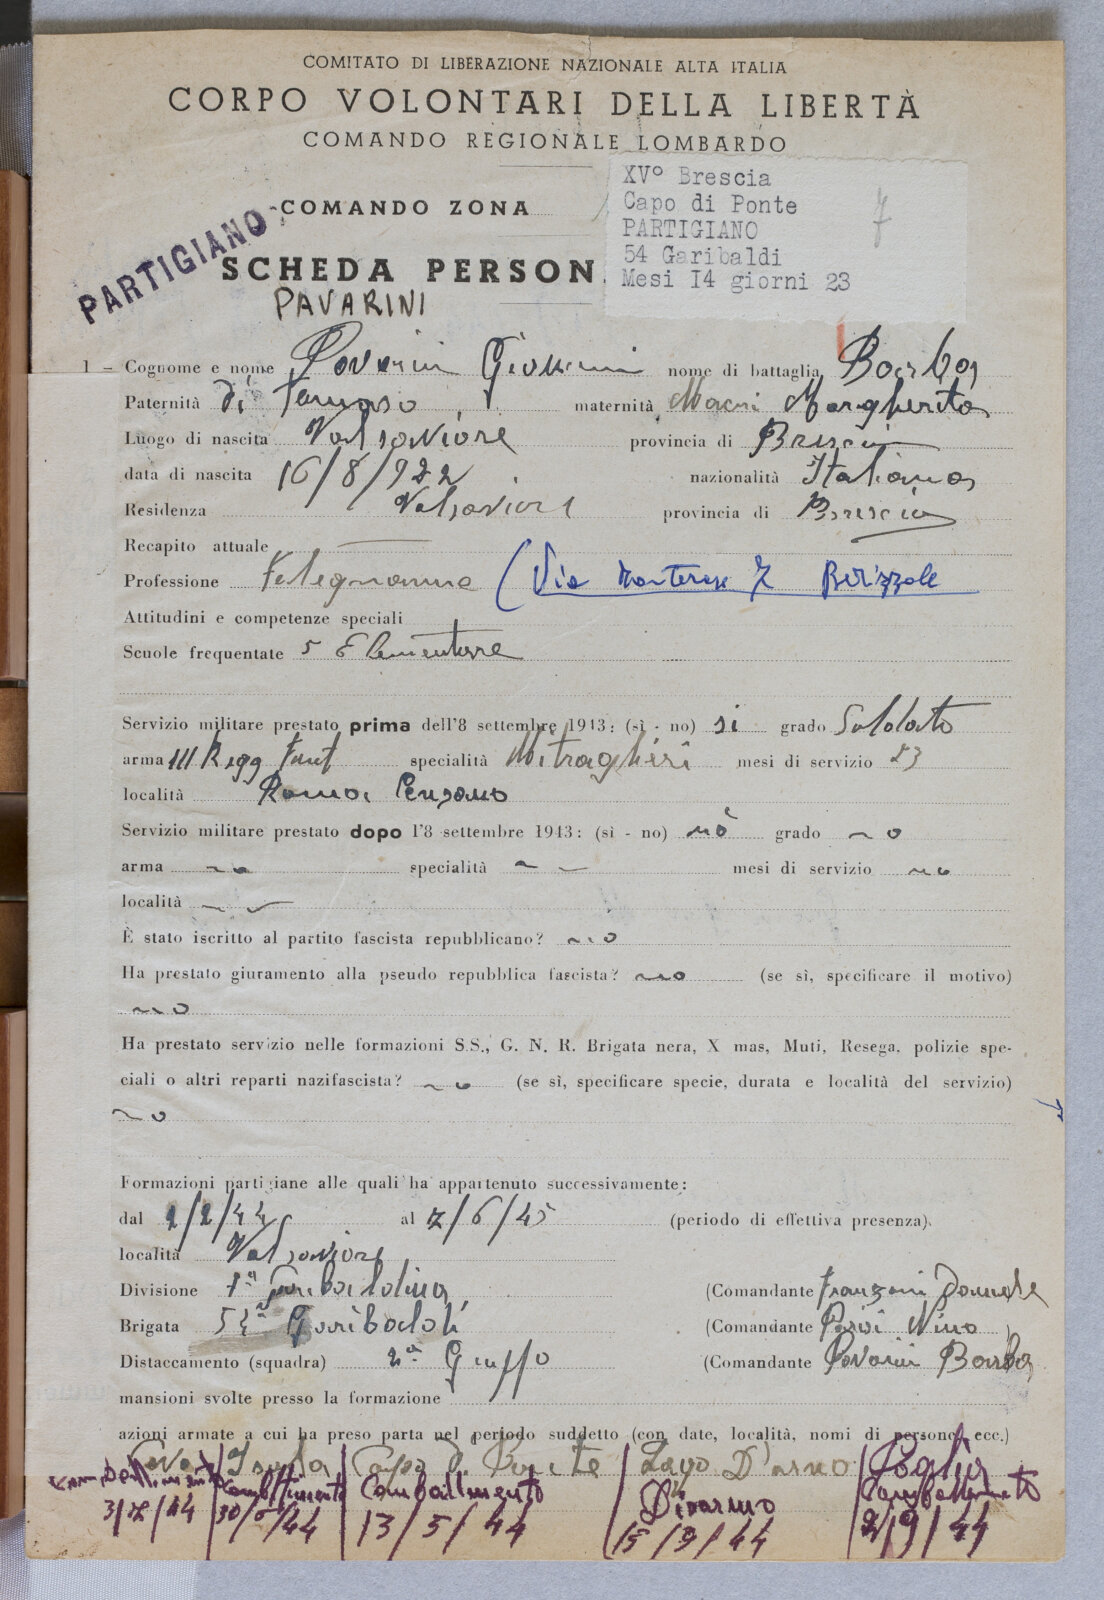 COMITATO DI LIBERAZIONE NAZIONALE ALTA ITALIA
CORPO VOLONTARI DELLA LIBERTÀ
COMANDO REGIONALE LOMBARDO
XV° Brescia
Capo di Ponte
PARTIGIANO
54 Garibaldi
Mesi I4 giorni 23
7
COMANDO ZONA
PARTIGIANO
SCHEDA PERSON
PAVARINI
1 - Cognome e nome Pavarini Giovanni nome di battaglia Barba
Paternità di Tomaso maternità Margherita
Luogo di nascita Valsaviore provincia di Brescia
data di nascita 16/8/922 nazionalità Italiana
Residenza Valsaviore provincia di Brescia
Recapito attuale
Professione Falegname (Via
Attitudini e competenze speciali
Scuole frequentate 5 Elementare
Servizio militare prestato prima dell'8 settembre 1943: (sì - no) si grado Soldato
arma III Regg Fant specialità Mitraglieri mesi di servizio 23
località Roma
Servizio militare prestato dopo l'8 settembre 1943: (sì - no) nò grado no
arma no specialità mesi di servizio no
località
È stato iscritto al partito fascista repubblicano? no
Ha prestato giuramento alla pseudo repubblica fascista? no (se sì, specificare il motivo)
no
Ha prestato servizio nelle formazioni S.S., G. N. R. Brigata nera, X mas, Muti, Resega, polizie spe-
ciali o altri reparti nazifascista? no (se sì, specificare specie, durata e località del servizio)
no
Formazioni partigiane alle quali ha appartenuto successivamente:
dal 2/2/44 al 7/6/45 (periodo di effettiva presenza).
località Valsaviore
Divisione 1ª Garibaldina (Comandante Franzoni
Brigata 54ª Garibaldi (Comandante Parisi Nino )
Distaccamento (squadra) 2º Gruppo (Comandante Pavarini Barba
mansioni svolte presso la formazione
azioni armate a cui ha preso parta nel periodo suddetto (con date, località, nomi di persone, ecc.)
Isola Capo di Ponte Lago D'arno
Combattimento Combattimento Combattimento Disarmo Combattimento
3/7/44 30/6/44 13/5/44 15/9/44 2/9/44